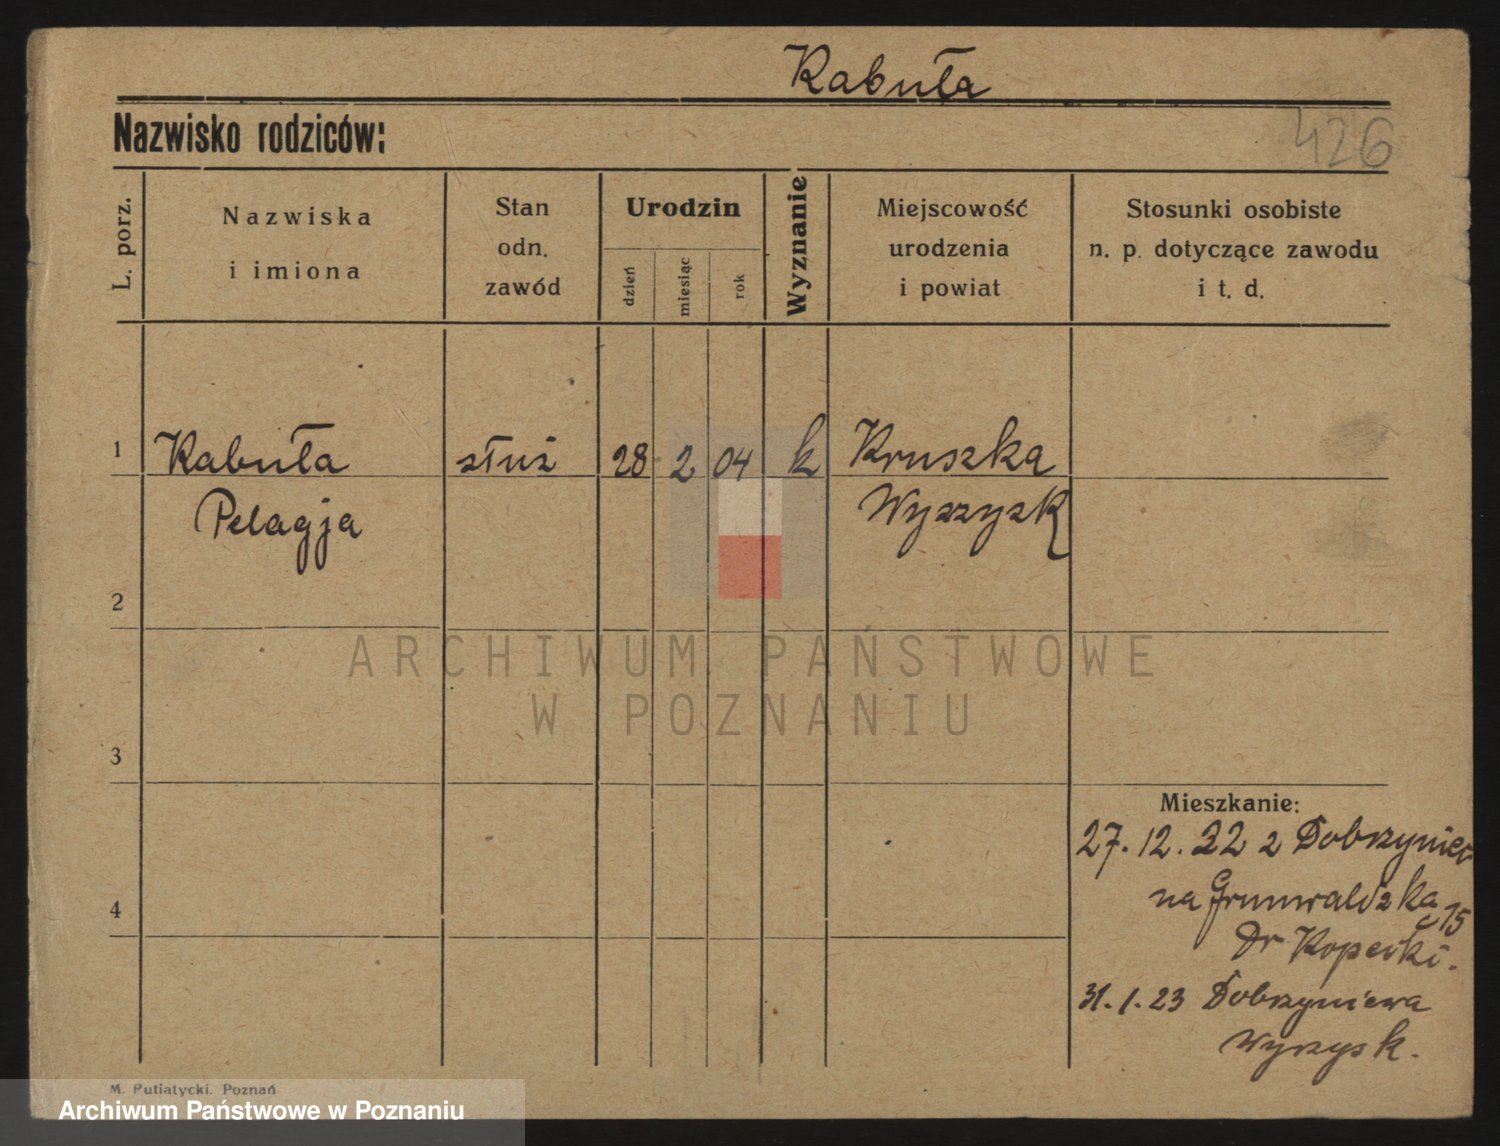 Kabuła
Nazwisko rodziców:
426
L. porz.
Nazwiska
i imiona
Stan
odn.
zawód
Urodzin
dzień
miesiąc
rok
Wyznanie
Miejscowość
urodzenia
i powiat
Stosunki osobiste
n. p. dotyczące zawodu
i t. d.
1
Kabuła
Pelagja
służ
28
2
04
k
Kruszka
Wyrzysk
2
3
4
Mieszkanie:
27. 12. 22 z Dobrzyniewa
na Grunwaldzka
15
Dr
31. 1. 23 Dobrzyniewa
Wyrzysk.
ARCHIWUM PAŃSTWOWE
W POZNANIU
M. Putiatycki, Poznań
Archiwum Państwowe w Poznaniu